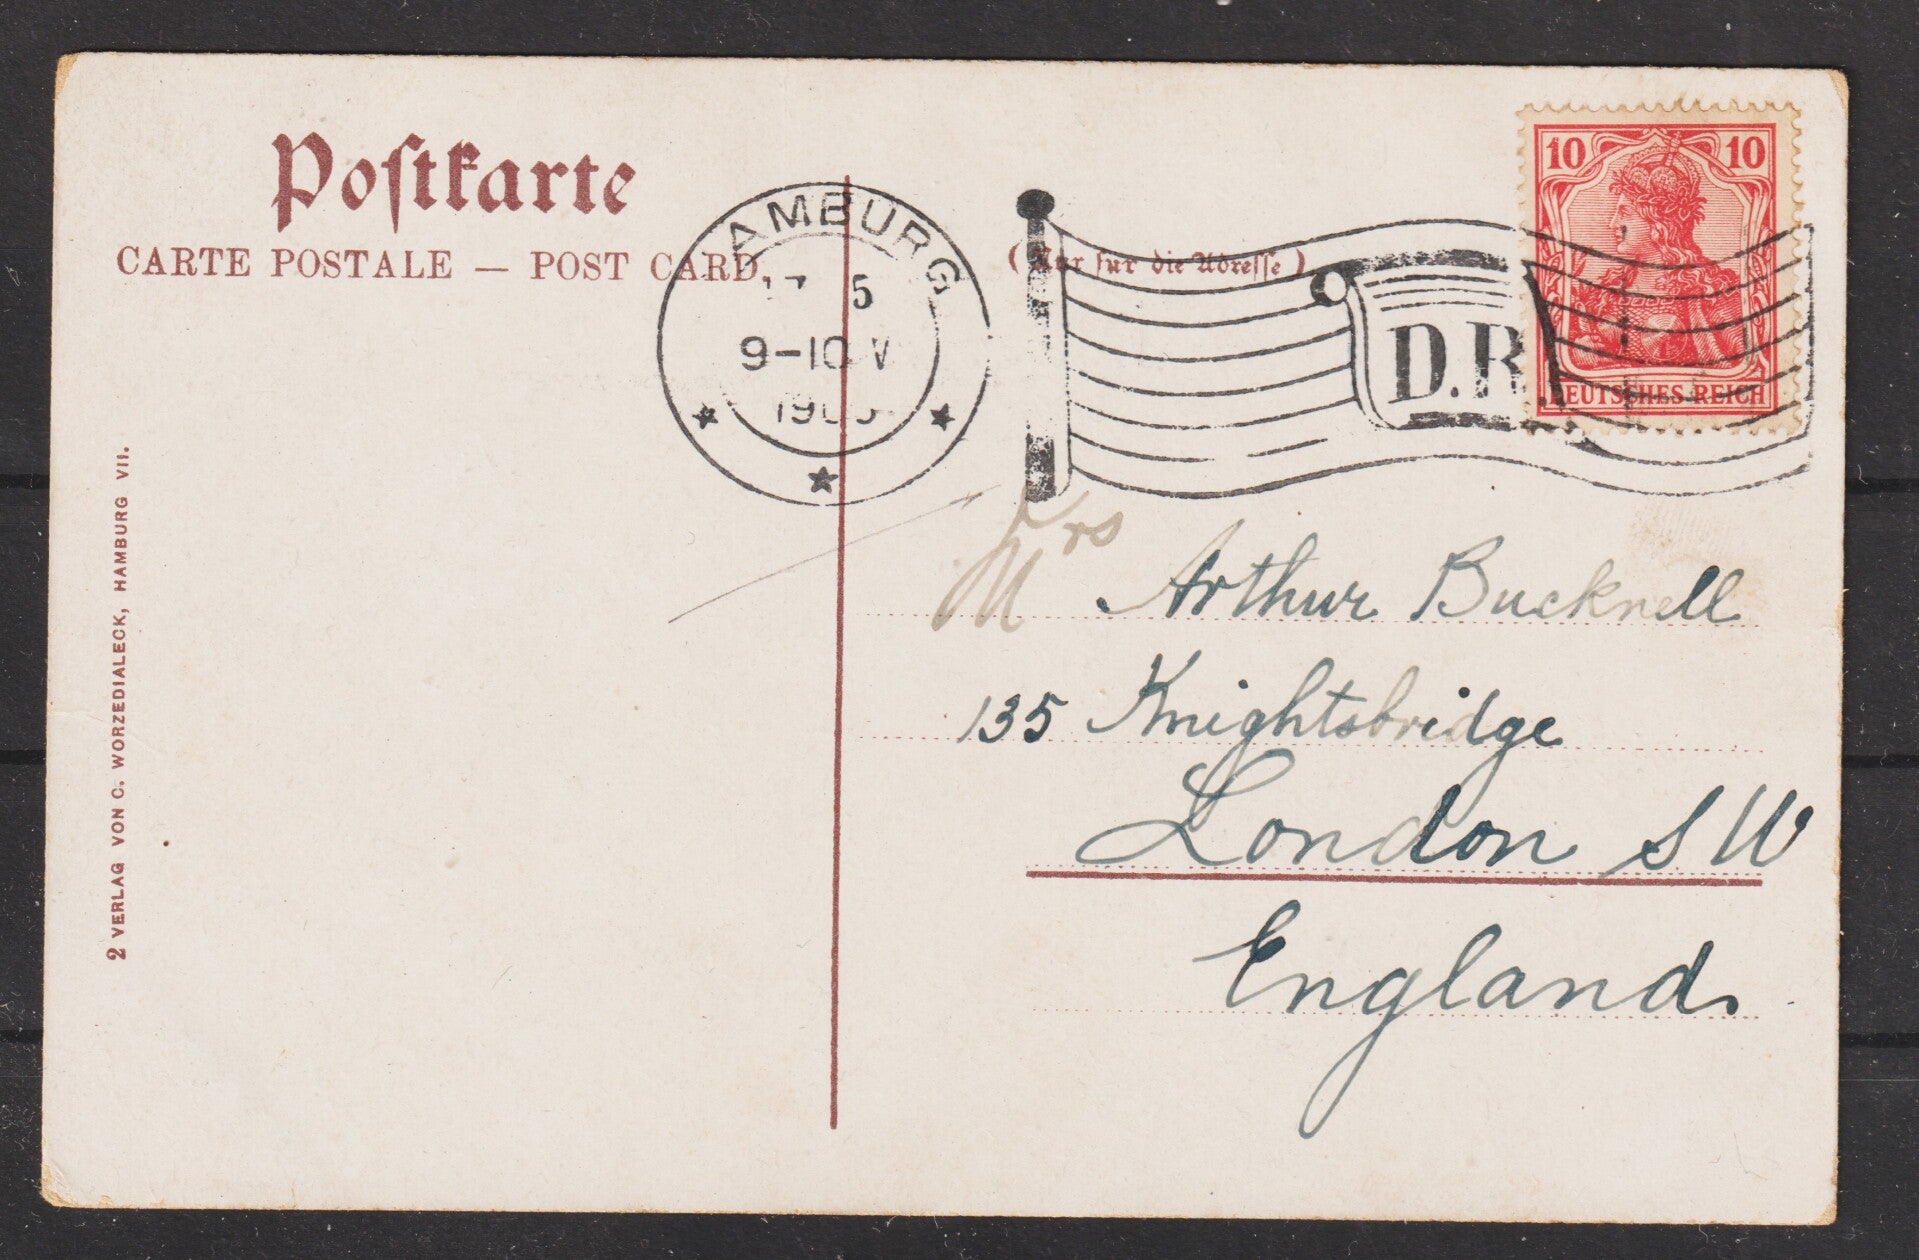 Postkarte
CARTE POSTALE — POST CARD.
(Nur für die Adresse)
HAMBURG
5
9-10 V
D.R.
10 10
DEUTSCHES REICH
Mrs Arthur Bucknell
135 Knightsbridge
London S W
England.
2 VERLAG VON C. WORZEDIALECK, HAMBURG VII.